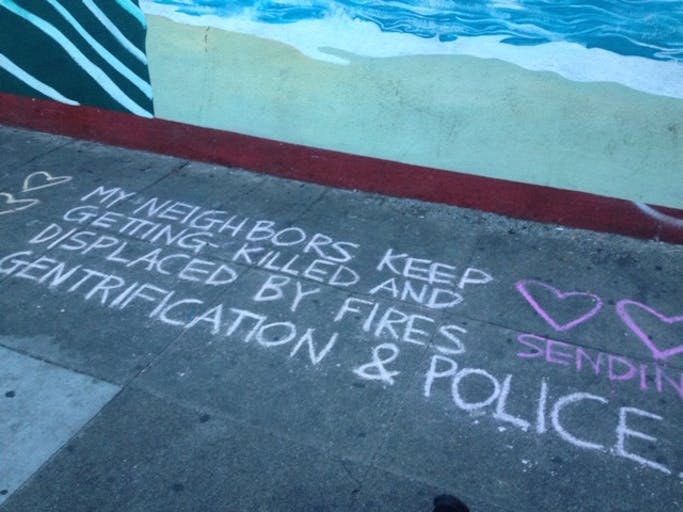 MY NEIGHBORS KEEP
GETTING KILLED AND
DISPLACED BY FIRES
GENTRIFICATION & POLICE
SENDIN